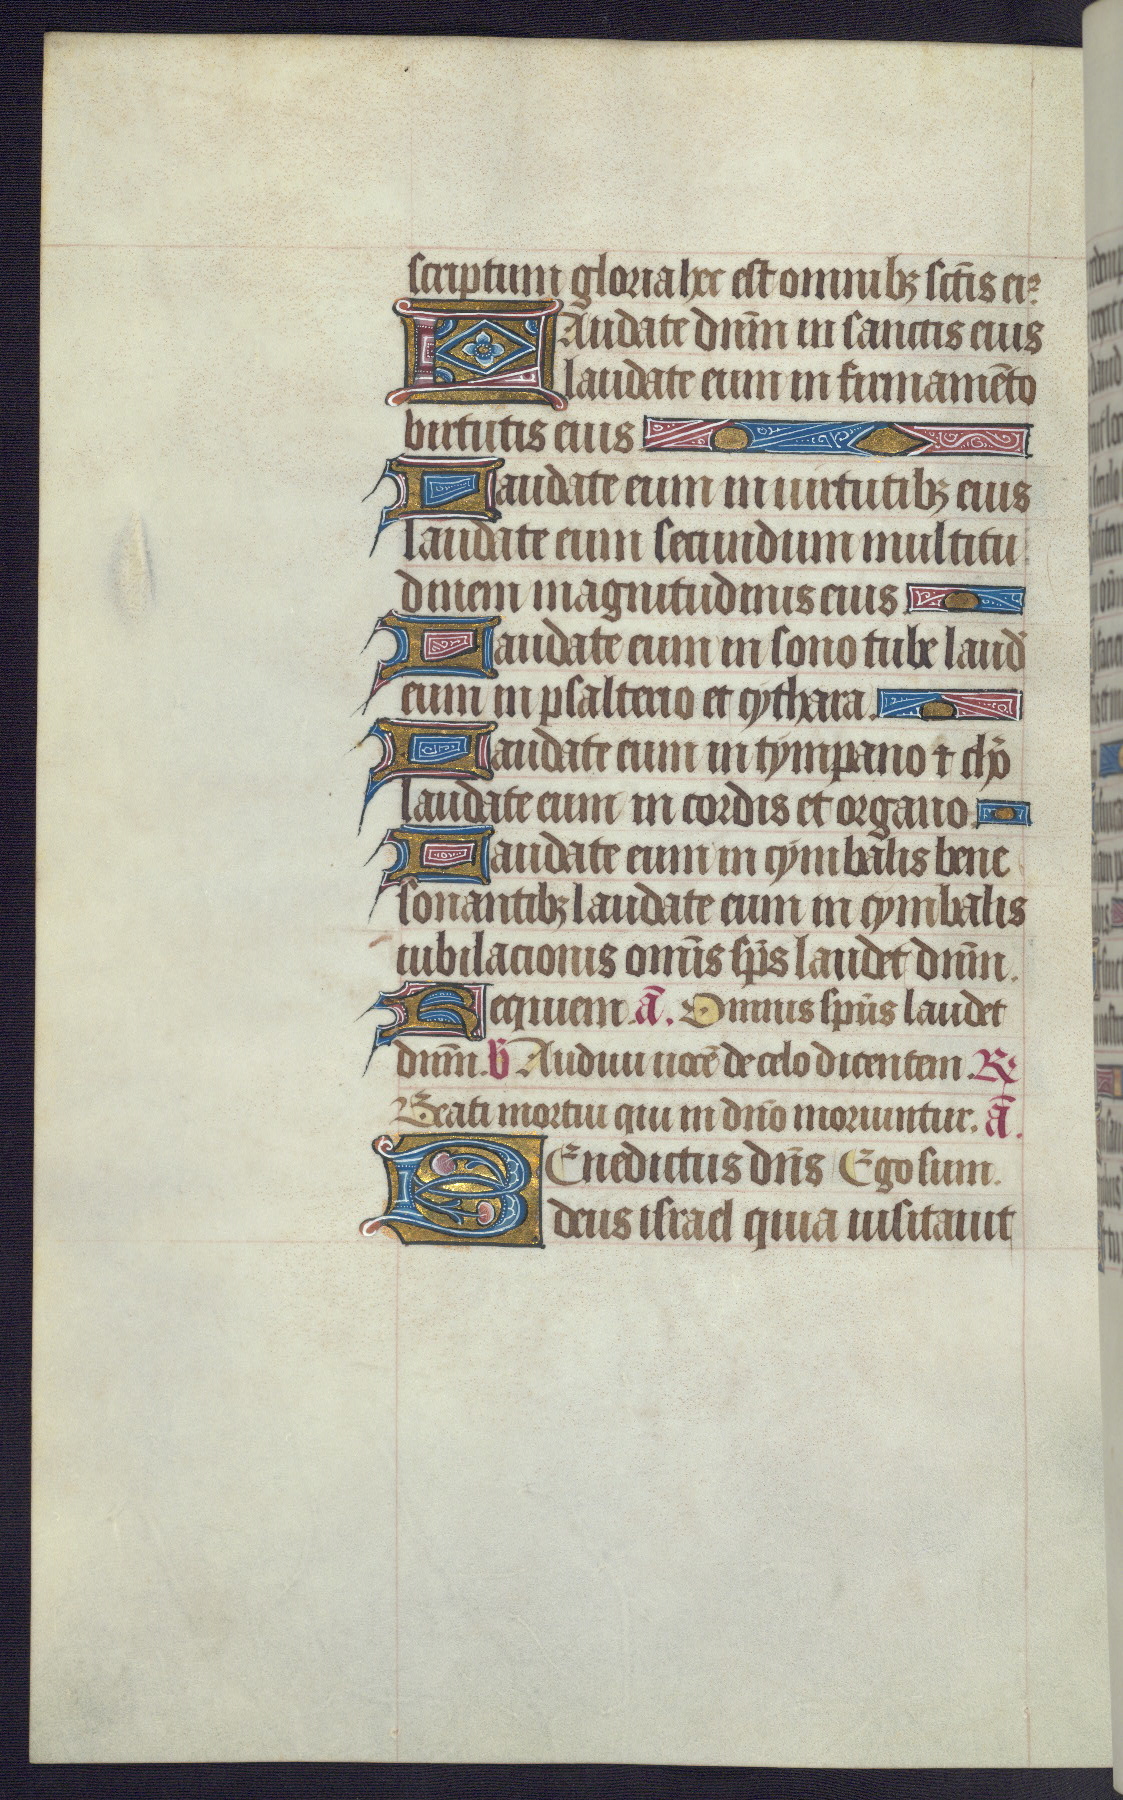 scriptum gloria hec est omnibꝫ sctīs eiꝰ
Laudate dnm̄ in sanctis eius
laudate eum in firmamēto
virtutis eius
Laudate eum in uirtutibꝫ eius
laudate eum secundum multitu
dinem magnitudinis eius
Laudate eum in sono tube laud̄
eum in psalterio et cythara.
Laudate eum in tympano ⁊ chō
laudate eum in cordis et organo.
Laudate eum in cymbalis bene
sonantibꝫ laudate eum in cymbalis
iubilacionis omīs sps̄ laudet dnm̄.
Requiem. ā. Omnis spūs laudet
dnm̄. v̄ Audiui uocē de celo dicentem. R̄
Beati mortui qui in dnō moriuntur. ā.
BEnedictus dns̄ Ego sum.
deus israel quia uisitauit